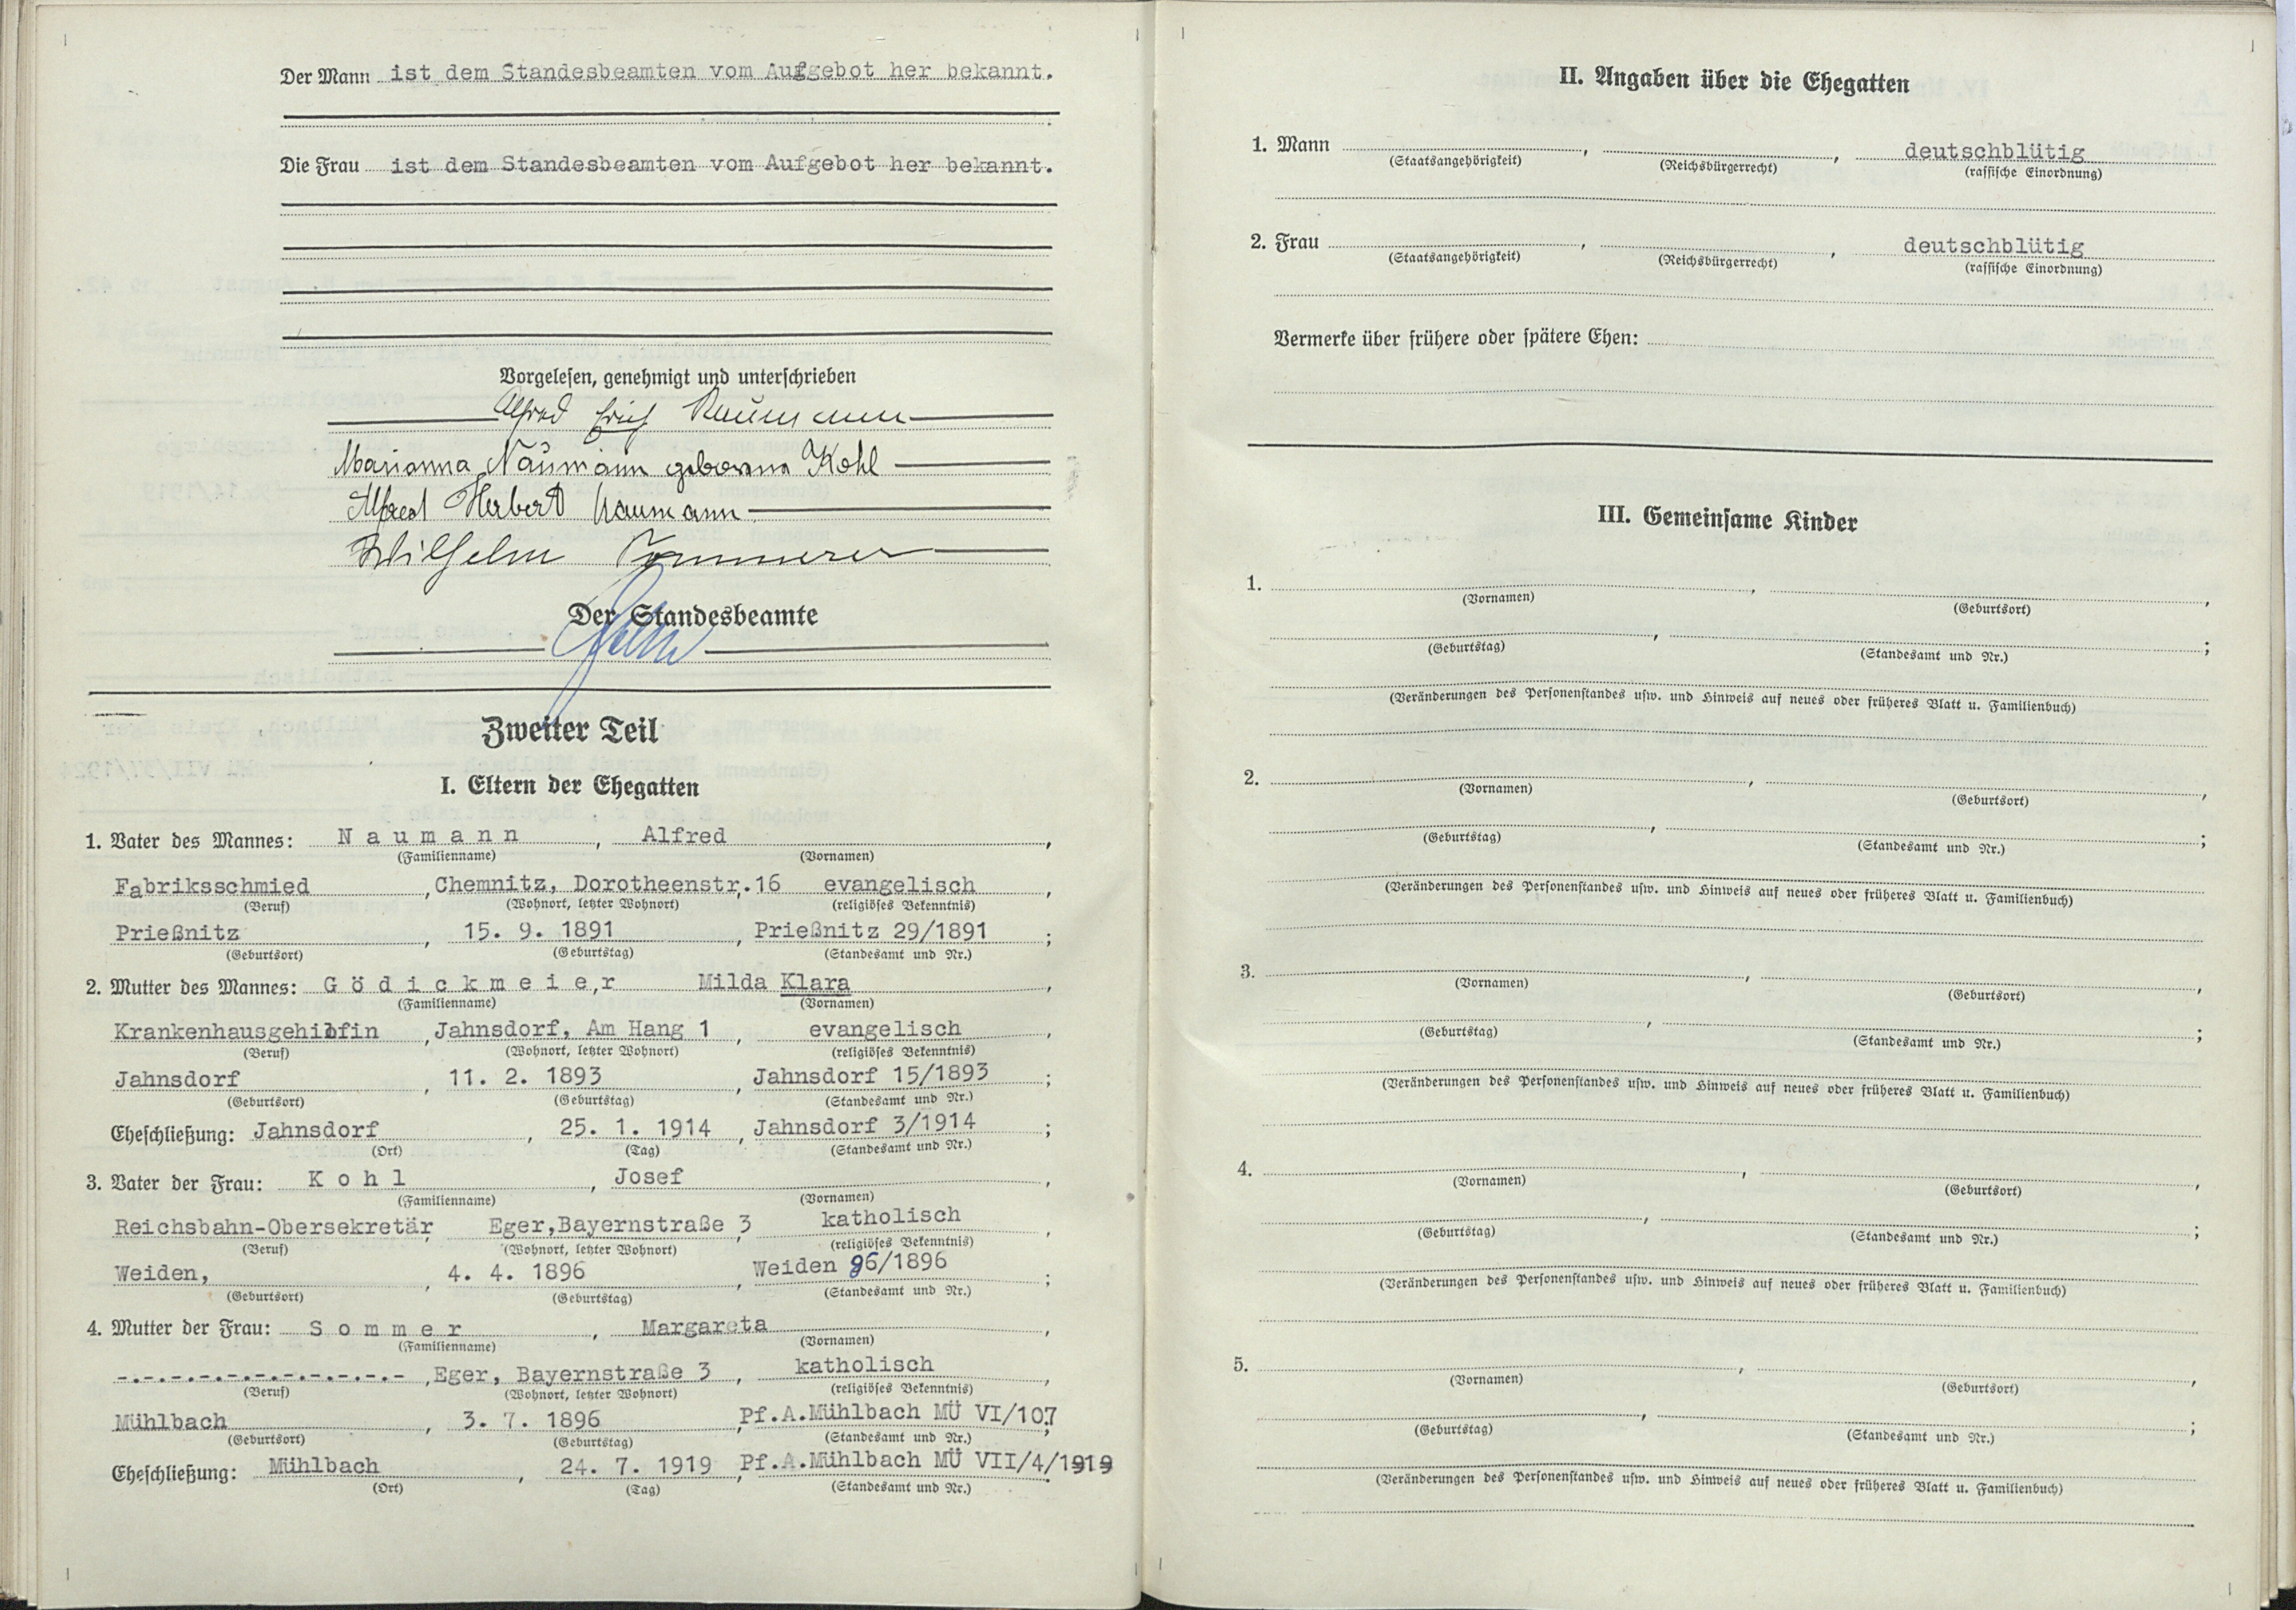 Der Mann ist dem Standesbeamten vom Aufgebot her bekannt.
Die Frau ist dem Standesbeamten vom Aufgebot her bekannt.
Vorgelesen, genehmigt und unterschrieben
Alfred Erich Naumann
Marianna Naumann geborene Kohl
Alfred Herbert Naumann
Wilhelm Sommerer
Der Standesbeamte
Zweiter Teil
I. Eltern der Ehegatten
1. Vater des Mannes: Naumann, Alfred,
(Familienname) (Vornamen)
Fabriksschmied, Chemnitz, Dorotheenstr.16 evangelisch,
(Beruf) (Wohnort, letzter Wohnort) (religiöses Bekenntnis)
Prießnitz, 15. 9. 1891, Prießnitz 29/1891;
(Geburtsort) (Geburtstag) (Standesamt und Nr.)
2. Mutter des Mannes: Gödickmeier, Milda Klara,
(Familienname) (Vornamen)
Krankenhausgehilfin, Jahnsdorf, Am Hang 1, evangelisch,
(Beruf) (Wohnort, letzter Wohnort) (religiöses Bekenntnis)
Jahnsdorf, 11. 2. 1893, Jahnsdorf 15/1893;
(Geburtsort) (Geburtstag) (Standesamt und Nr.)
Eheschließung: Jahnsdorf, 25. 1. 1914, Jahnsdorf 3/1914;
(Ort) (Tag) (Standesamt und Nr.)
3. Vater der Frau: Kohl, Josef,
(Familienname) (Vornamen)
Reichsbahn-Obersekretär, Eger,Bayernstraße 3, katholisch,
(Beruf) (Wohnort, letzter Wohnort) (religiöses Bekenntnis)
Weiden, , 4. 4. 1896, Weiden 96/1896;
(Geburtsort) (Geburtstag) (Standesamt und Nr.)
4. Mutter der Frau: Sommer, Margareta,
(Familienname) (Vornamen)
-.-.-.-.-.-.-.-.-.-.-, Eger, Bayernstraße 3, katholisch,
(Beruf) (Wohnort, letzter Wohnort) (religiöses Bekenntnis)
Mühlbach, 3. 7. 1896, Pf.A.Mühlbach MÜ VI/107;
(Geburtsort) (Geburtstag) (Standesamt und Nr.)
Eheschließung: Mühlbach, 24. 7. 1919, Pf.A.Mühlbach MÜ VII/4/1919
(Ort) (Tag) (Standesamt und Nr.)
II. Angaben über die Ehegatten
1. Mann , , deutschblütig
(Staatsangehörigkeit) (Reichsbürgerrecht) (rassische Einordnung)
2. Frau , , deutschblütig
(Staatsangehörigkeit) (Reichsbürgerrecht) (rassische Einordnung)
Vermerke über frühere oder spätere Ehen:
III. Gemeinsame Kinder
1. , ,
(Vornamen) (Geburtsort)
, ;
(Geburtstag) (Standesamt und Nr.)
(Veränderungen des Personenstandes usw. und Hinweis auf neues oder früheres Blatt u. Familienbuch)
2. , ,
(Vornamen) (Geburtsort)
, ;
(Geburtstag) (Standesamt und Nr.)
(Veränderungen des Personenstandes usw. und Hinweis auf neues oder früheres Blatt u. Familienbuch)
3. , ,
(Vornamen) (Geburtsort)
, ;
(Geburtstag) (Standesamt und Nr.)
(Veränderungen des Personenstandes usw. und Hinweis auf neues oder früheres Blatt u. Familienbuch)
4. , ,
(Vornamen) (Geburtsort)
, ;
(Geburtstag) (Standesamt und Nr.)
(Veränderungen des Personenstandes usw. und Hinweis auf neues oder früheres Blatt u. Familienbuch)
5. , ,
(Vornamen) (Geburtsort)
, ;
(Geburtstag) (Standesamt und Nr.)
(Veränderungen des Personenstandes usw. und Hinweis auf neues oder früheres Blatt u. Familienbuch)